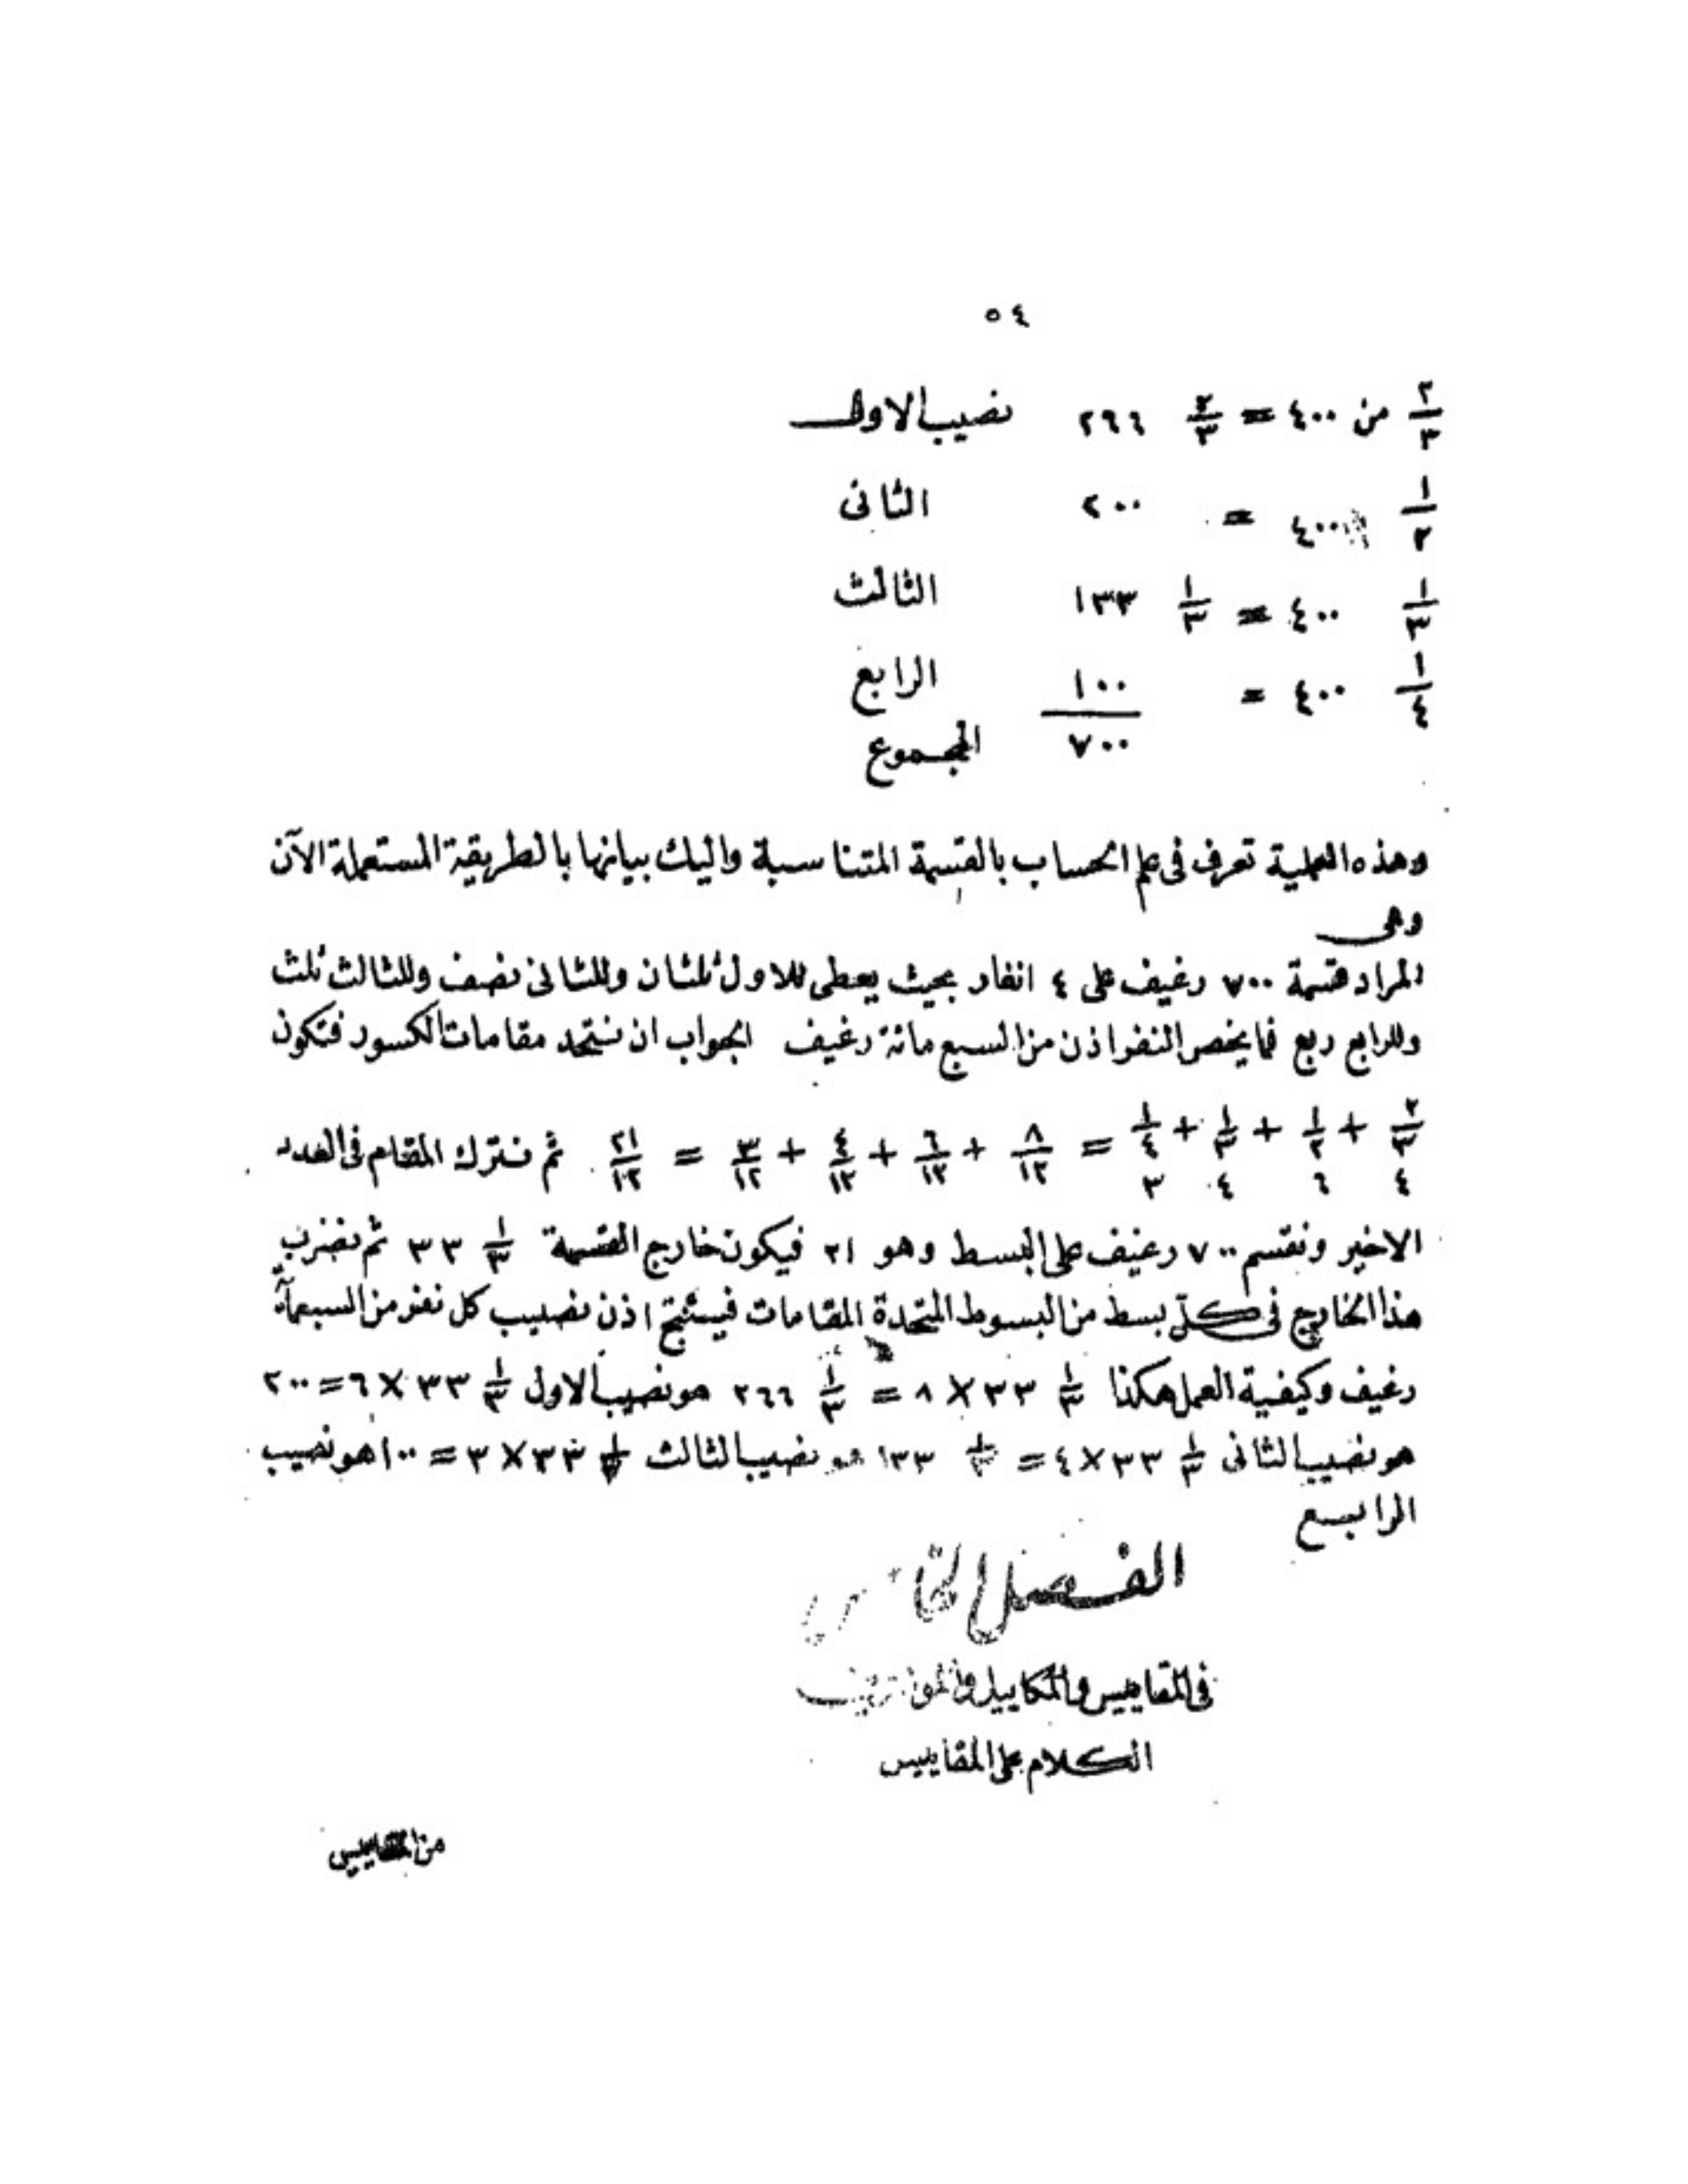 ٥٤
٢/٣ من ٤٠٠ = ٢/٣ ٢٦٦ نصيب الاول
١/٢ ٤٠٠ = ٢٠٠ الثانى
١/٣ ٤٠٠ = ١/٣ ١٣٣ الثالث
١/٤ ٤٠٠ = ١٠٠ الرابع
٧٠٠ المجموع
وهذه العملية تعرف فى علم الحساب بالقسمة المتناسبة واليك بيانها بالطريقة المستعملة الآن
وهى
المراد قسمة ٧٠٠ رغيف على ٤ انفار بحيث يعطى للاول ثلثان وللثانى نصف وللثالث ثلث
وللرابع ربع فما يخص النفر اذن من السبع مائة رغيف الجواب ان نتحد مقامات الكسور فتكون
٢/٣ + ١/٢ + ١/٣ + ١/٤ = ٨/١٢ + ٦/١٢ + ٤/١٢ + ٣/١٢ = ٢١/١٢ ثم نترك المقام فى العدد
٤ ٦ ٤ ٣
الاخير ونقسم ٧٠٠ رغيف على البسط وهو ٢١ فيكون خارج القسمة ١/٣ ٣٣ ثم نضرب
هذا الخارج فى كل بسط من البسوط المتحدة المقامات فيستنتج اذن نصيب كل نفر من السبعمآة
رغيف وكيفية العمل هكذا ١/٣ ٣٣ × ٨ = ١/٣ ٢٦٦ هو نصيب الاول ١/٣ ٣٣ × ٦ = ٢٠٠
هو نصيب الثانى ١/٣ ٣٣ × ٤ = ١/٣ ١٣٣ هو نصيب الثالث ١/٣ ٣٣ × ٣ = ١٠٠ هو نصيب
الرابع
الفصل
فى المقاييس والمكاييل
الكلام على المقاييس
من المقاييس